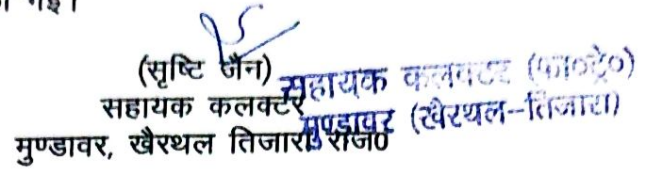 गई।
(सृष्टि जैन)
सहायक कलक्टर
मुण्डावर, खैरथल तिजारा राज0
सहायक कलक्टर (फा०ट्रे०)
मुण्डावर (खैरथल-तिजारा)